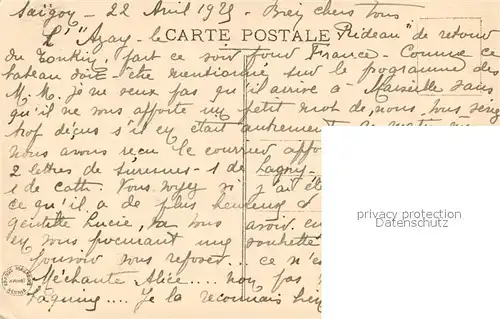 Saïgon - 22 Avril 1925 - Bien chers tous
L'"Azay-le Rideau" de retour
CARTE POSTALE
du Tonkin, part ce soir pour France - Comme ce
bateau doit être mentionné sur le programme des
M. M. je ne veux pas qu'il arrive à Marseille sans
qu'il ne vous apporte un petit mot de nous, vous seriez
trop déçus s'il en était autrement. Ce matin
nous avons reçu le courrier
2 lettres de Suresnes - 1 de Lagny -
1 de Cath. Vous voyez si j'ai été
ce qu'il a de plus heureuse à
gentille Lucie, va vous avoir
en vous procurant une
pouvoir vous reposer... ce n'est
Méchante Alice.... non pas
.... Je la reconnais
privacy protection
www.Datenschutz.de